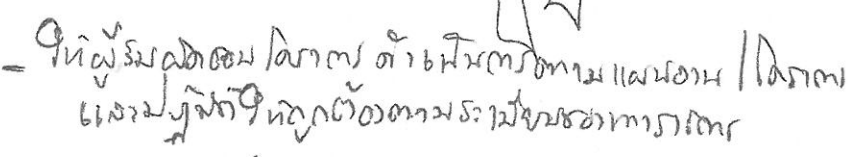 - ให้ผู้รับผิดชอบโครงการ ดำเนินการตามแผนงาน/โครงการ
และปฏิบัติให้ถูกต้องตามระเบียบของทางราชการ